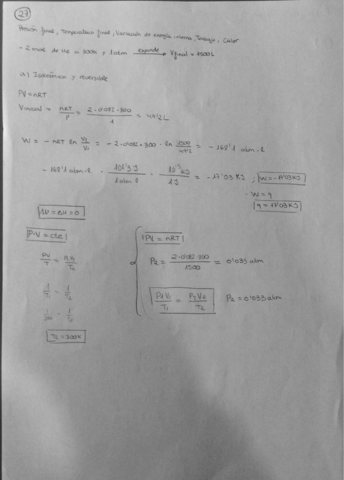 27
Presión final, Temperatura final, Variación de energía interna, Trabajo, Calor
- 2 moles de He a 300K y 1 atm expande → V final = 1500L
a) Isotérmica y reversible
PV = nRT
V inicial = nRT / P = 2·0'082·300 / 1 = 49'2 L
W = - nRT ln V2/V1 = - 2·0'082·300 · ln 1500/49'2 = - 168'1 atm·l
- 168'1 atm·l · 101'3 J / 1 atm·l · 10⁻³ KJ / 1 J = - 17'03 KJ ; W = - 17'03 KJ
- W = q
q = 17'03 KJ
ΔU = ΔH = 0
PV = cte
PV = nRT
P2 = 2·0'082·300 / 1500 = 0'033 atm
P1V1 / T1 = P2V2 / T2 P2 = 0'033 atm
T2 = 300K